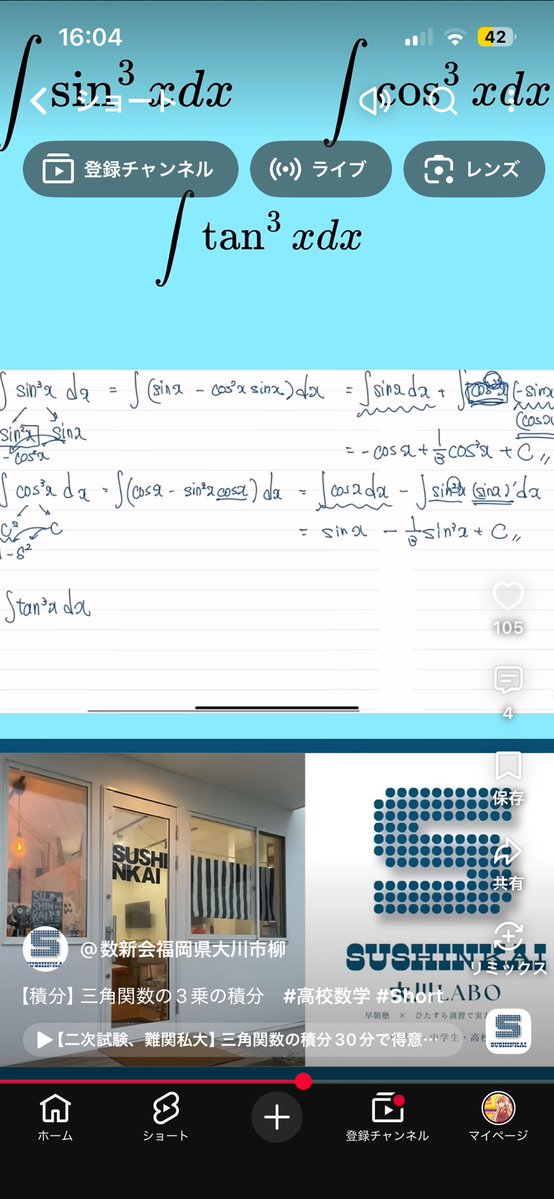 16:04
42
∫ sin³ xdx
∫ cos³ xdx
ショート
登録チャンネル
ライブ
レンズ
∫ tan³ xdx
∫ sin³x dx = ∫(sinx - cos²x sinx)dx = ∫sinx dx + ∫cos²x (-sinx
sin²x sinx
(cosx
1 - cos²x
= -cosx + 1/3 cos³x + C //
∫ cos³x dx = ∫(cosx - sin²x cosx) dx = ∫cosx dx - ∫sin²x (sinx)' dx
C² C
1 - S²
= sinx - 1/3 sin³x + C //
∫tan³x dx
105
4
保存
共有
リミックス
SUSHI
NKAI
SUSHINKAI
LABO
早朝塾 × ひたすら演習で実
中学生・高校
@数新会福岡県大川市柳
【積分】三角関数の３乗の積分 #高校数学 #Short
【二次試験、難関私大】三角関数の積分30分で得意…
SUSHINKAI
ホーム
ショート
登録チャンネル
マイページ